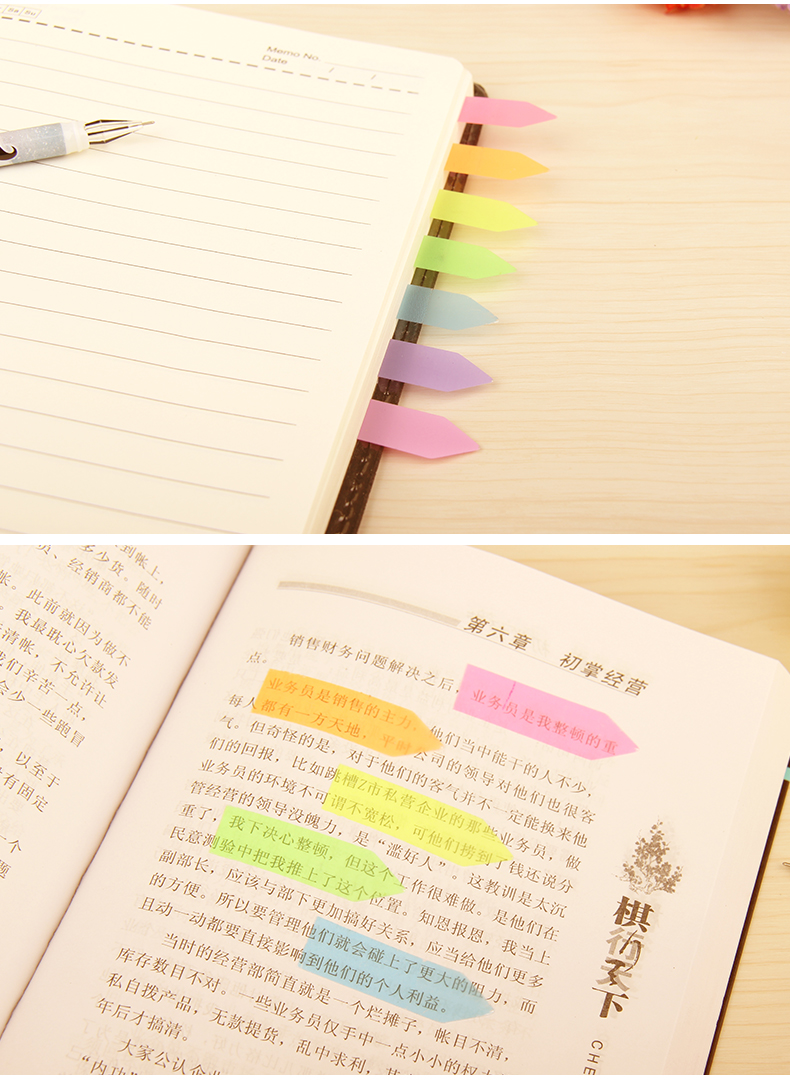 Sa Su
Memo No.
Date / /
到帐上，
多少货。随时
员、经销商都不能
帐。此前就因为做不
。我最耽心欠款发
清帐，不允许让
我们辛苦一点，
会少一些跑冒
，以至于
有固定
一个
题
第六章 初掌经营
销售财务问题解决之后，业务员是我整顿的重
点。
业务员是销售的主力，他们当中能干的人不少，
每人都有一方天地，平时公司的领导对他们也很客
气。但奇怪的是，对于他们的客气并不一定能换来他
们的回报，比如跳槽Z市私营企业的那些业务员，做
业务员的环境不可谓不宽松，可他们捞到了钱还说分
管经营的领导没魄力，是“滥好人”。这教训是太沉
重了，我下决心整顿，但这个工作很难做。是他们在
民意测验中把我推上了这个位置。知恩报恩，我当上
副部长，应该与部下更加搞好关系，应当给他们更多
的方便。所以要管理他们就会碰上了更大的阻力，而
且动一动都要直接影响到他们的个人利益。
当时的经营部简直就是一个烂摊子，帐目不清，
库存数目不对。一些业务员仅手中一点小小的权
私自拨产品，无款提货，乱中求利，
年后才搞清。
大家公认企业
“内功”
棋行天下
CHE